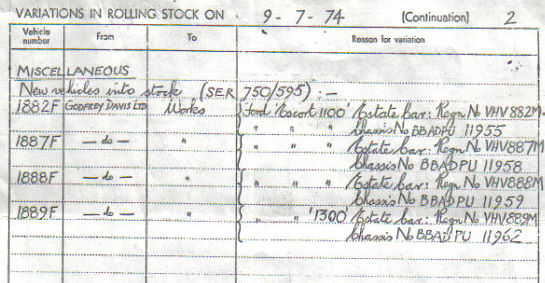 VARIATIONS IN ROLLING STOCK ON 9-7-74 (Continuation) 2
Vehicle number From To Reason for variation
MISCELLANEOUS
New vehicles into stock (SER 750/595) :-
1882F GODFREY DAVIS LTD Works Ford 'Escort 1100' Estate Car: Regn No VHV 882M.
Chassis No BBADPU 11955
1887F — do — " " " " Estate Car: Regn No VHV887M
Chassis No BBADPU 11958
1888F — do — " " " " Estate Car: Regn No VHV888M
Chassis No BBADPU 11959
1889F — do — " " " '1300' Estate Car: Regn No VHV889M
Chassis No BBADPU 11962